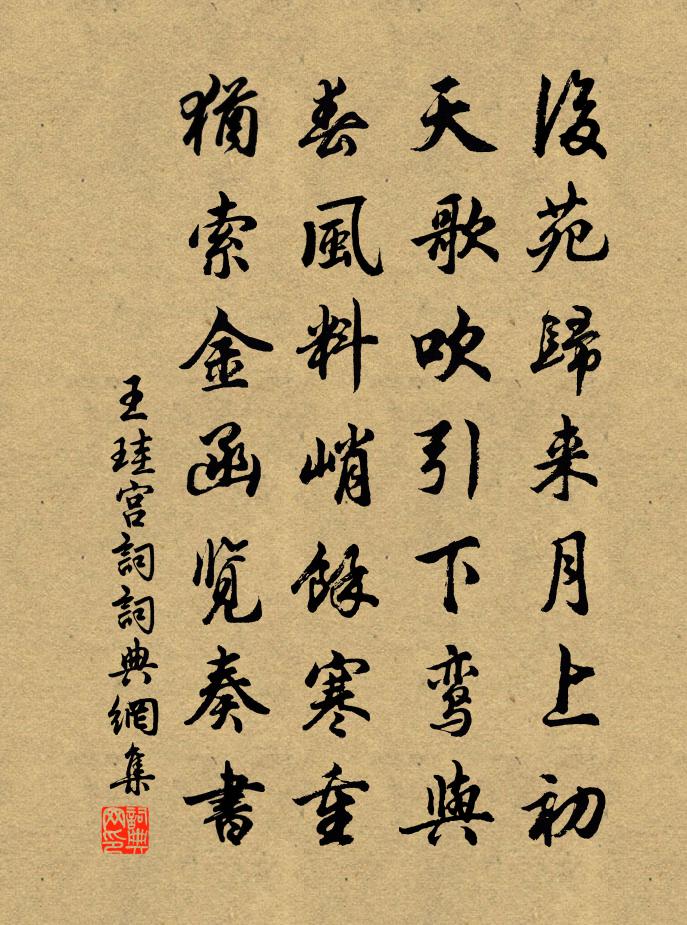 後苑歸来月上初
天歌吹引下鸾輿
春風料峭餘寒重
猶索金函览奏書
王珪宫詞詞典網集
詞典网印